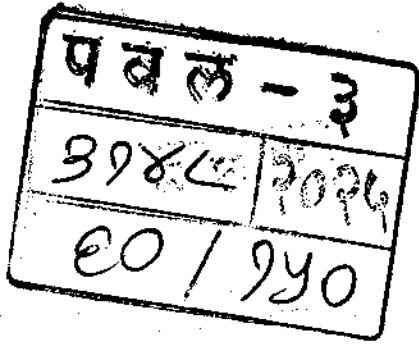 पवल - ३
३१४८ २०२५
९० / १५०